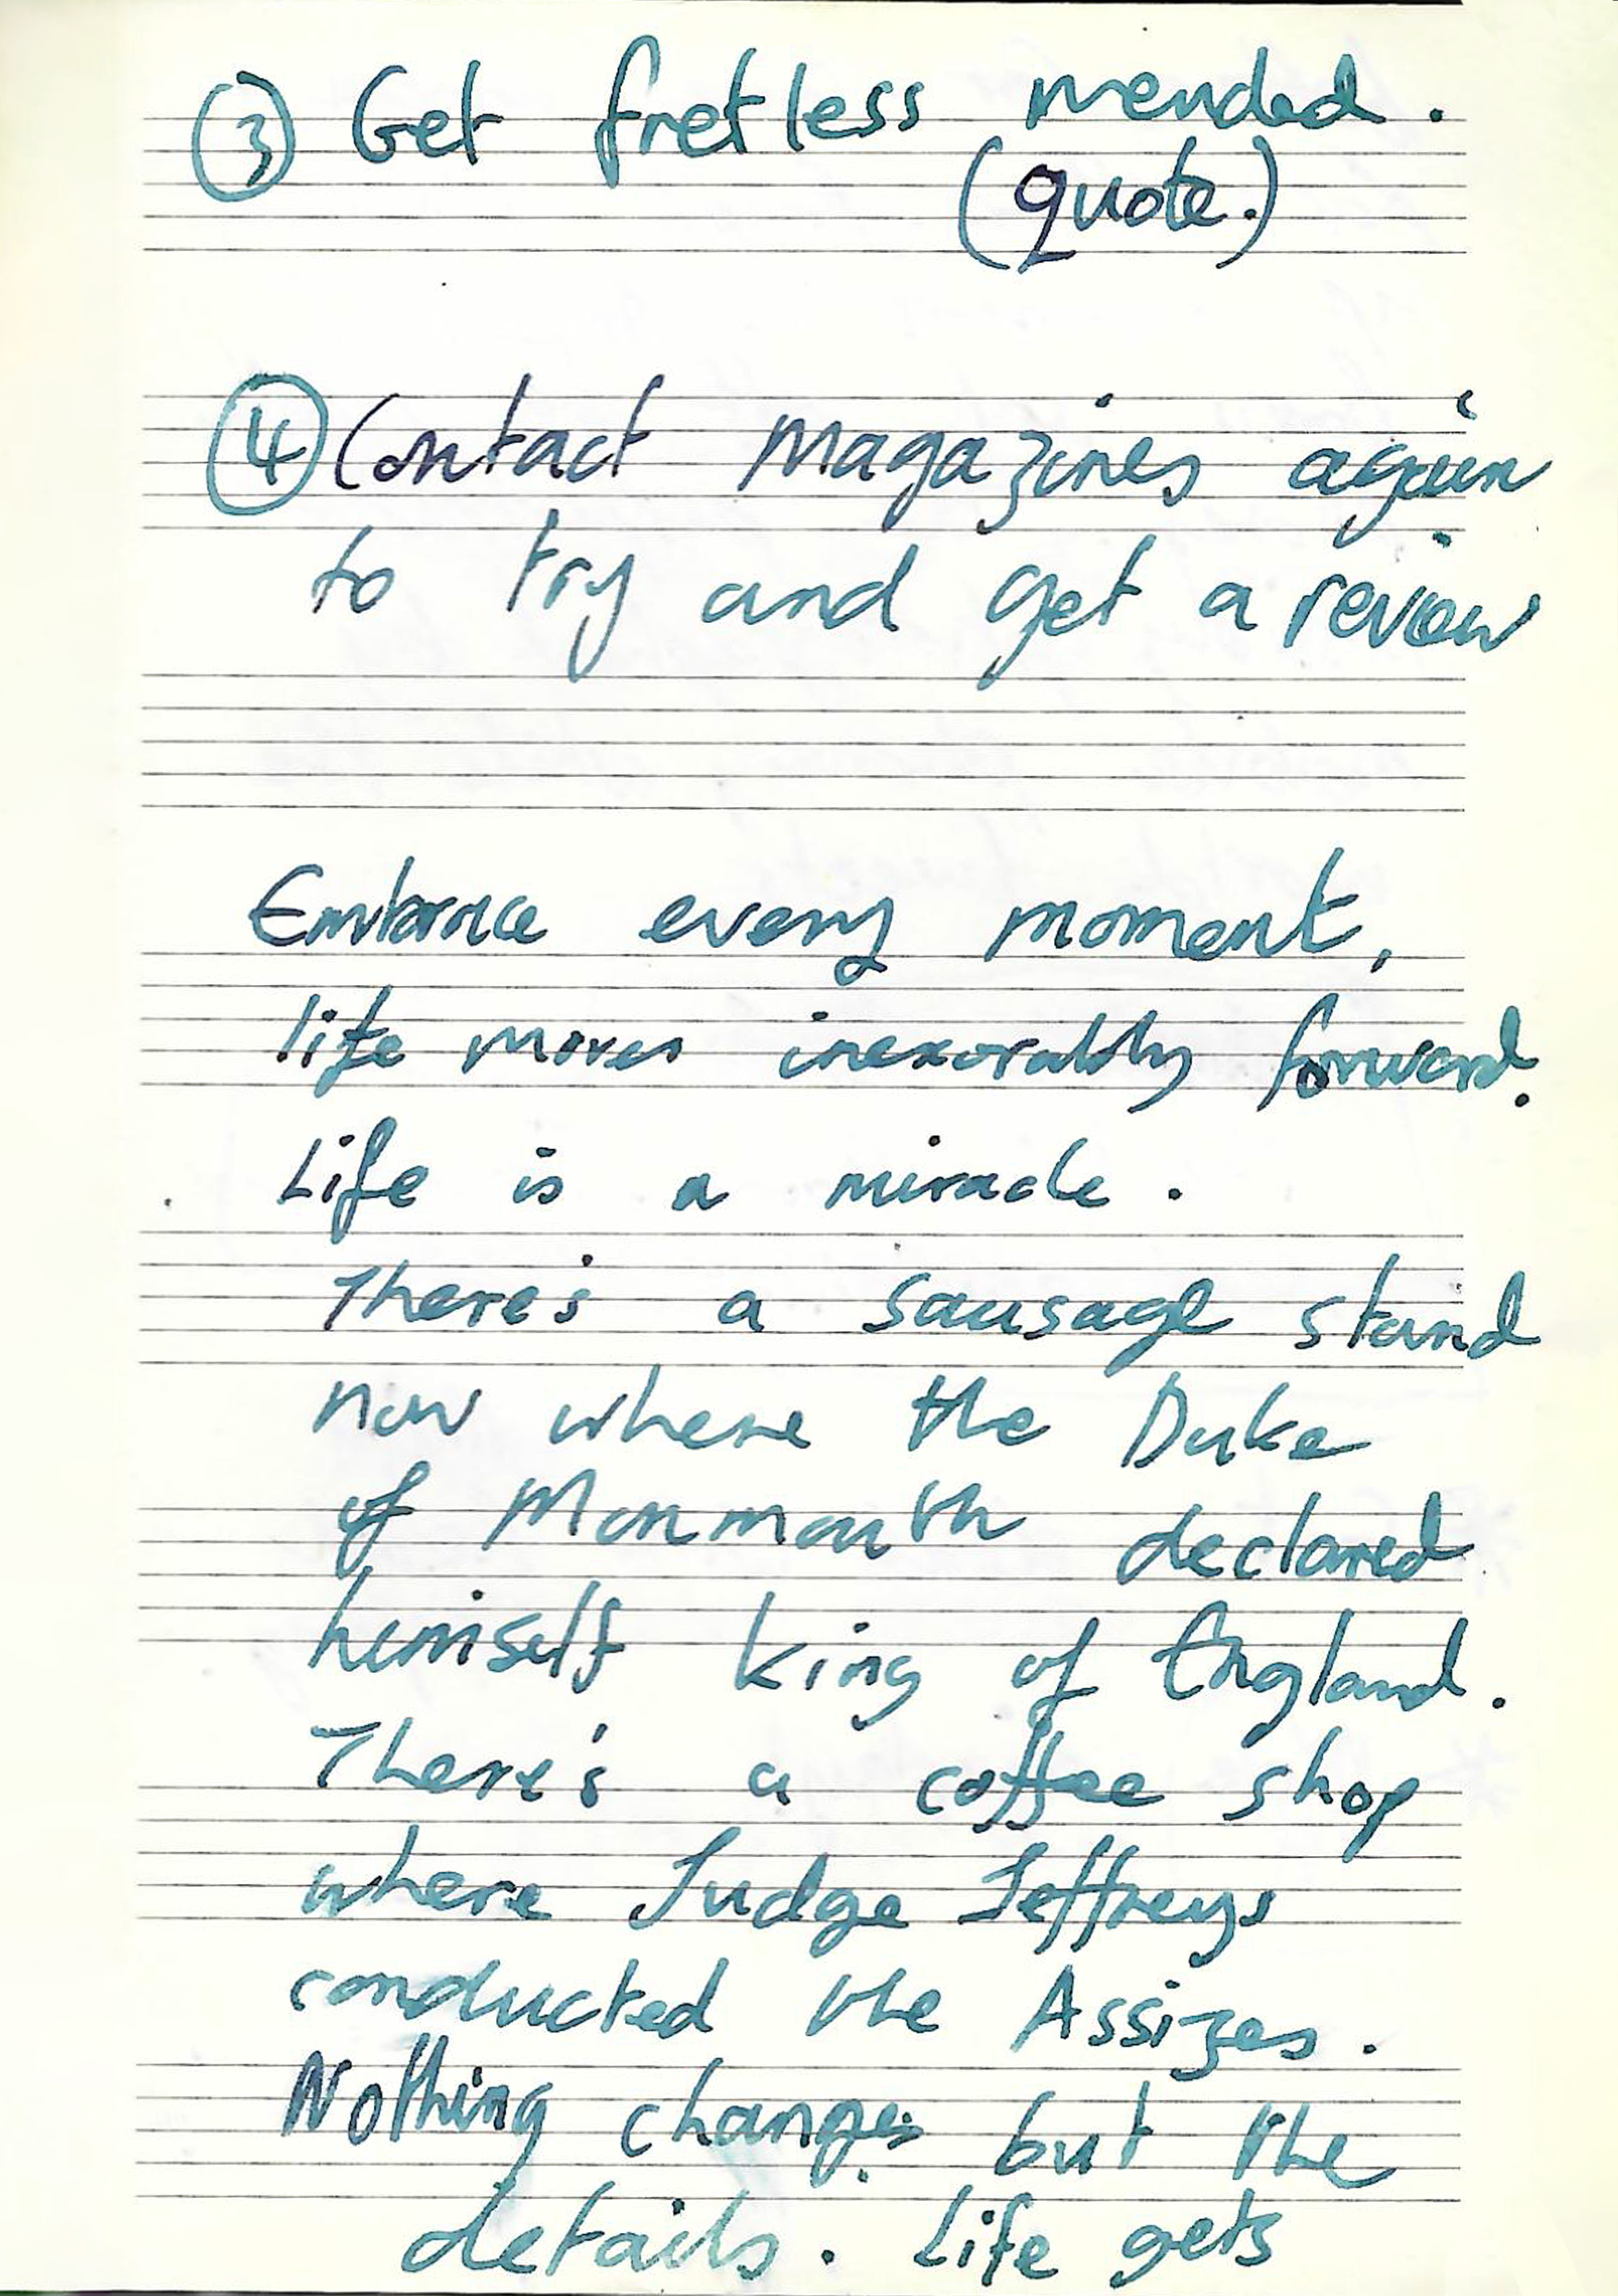 ③ Get fretless mended.
(quote.)
④ Contact Magazines again
to try and get a review
Embrace every moment,
life moves inexorably forward.
Life is a miracle.
There's a sausage stand
now where the Duke
of Monmouth declared
himself king of England.
There's a coffee shop
where Judge Jeffreys
conducted the Assizes.
Nothing changes but the
details. Life gets